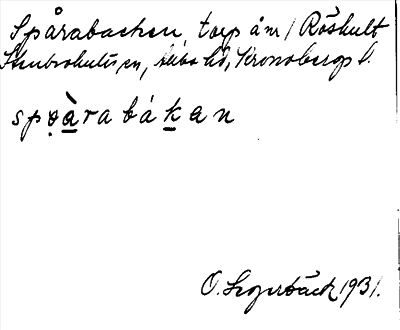 Spårabacken, torp å nr 1 Röshult
Stenbrohults sn, Allbo hd, Kronobergs l.
spo̤à̱rabáḵan
O. Segerbäck 1931.